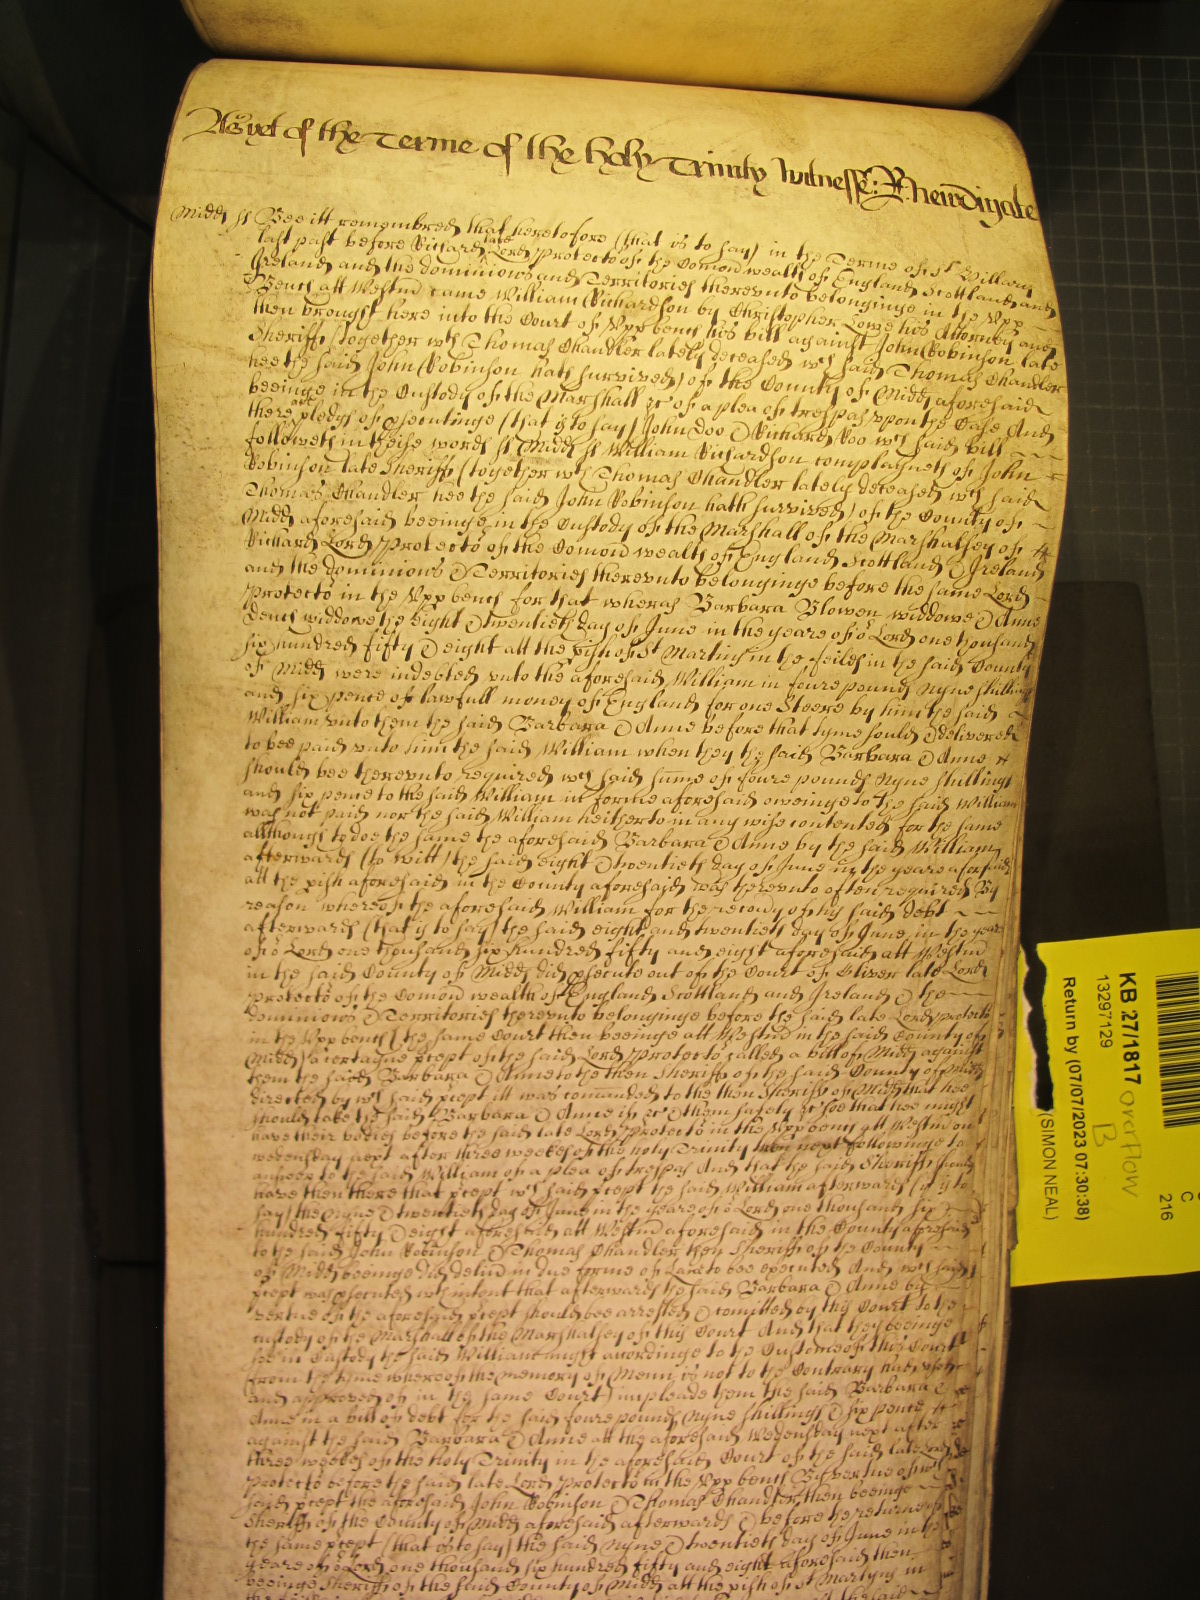 As yet of the Terme of the holy Trinity Witnesse: R: Newdigate
Midds ss Bee itt remembred that heretofore (that is to say) in the Terme of St Hillary
last past before Richard late Lord Protector of the Comon wealth of England Scottland and
Ireland and the dominions and Territories therevnto belonginge in the Vpp
Bench att Westm came William Richardson by Christopher Lowe his Attorney and
then brought here into the Court of Vpp bench his bill against John Robinson late
Sheriffe (together wth Thomas Chandler lately deceased wch said Thomas Chandler
hee the said John Robinson hath survived) of the County of Midds aforesaid
beeinge in the Custody of the Marshall &c of a plea of trespas vpon the Case And
there are pledgs of psecutinge (that is to say) John Doo & Richard Roo wch said bill
followeth in theise words ss Midds ss William Richardson complayneth of John
Robinson late Sheriffe (together wth Thomas Chandler lately deceased wch said
Thomas Chandler hee the said John Robinson hath survived) of the County of
Midds aforesaid beeinge in the Custody of the Marshall of the Marshalsey of
Richard Lord Protector of the Comon wealth of England Scottland & Ireland
and the dominions & Territories therevnto belonginge before the same Lord
Protector in the Vpp bench for that wheras Barbara Blowen widdowe & Anne
Dench widdowe the eight & twentieth day of June in the yeare of or Lord one thousand
six hundred fifty & eight att the pish of St Martins in the feilds in the said County
of Midds were indebted vnto the aforesaid William in foure pounds nyne shillings
and six pence of lawfull money of England for one Steere by him the said
William vnto them the said Barbara & Anne before that tyme sould & delivered
to bee paid vnto him the said William when they the said Barbara & Anne
should bee therevnto required wch said sume of foure pounds nyne shillings
and six pence to the said William in forme aforesaid oweinge to the said William
was not paid nor the said William hitherto in any wise contented for the same
although to doe the same the aforesaid Barbara & Anne by the said William
afterwards (to witt) the said eight & twentieth day of June in the yeare aforesaid
att the pish aforesaid in the County aforesaid was therevnto often required By
reason whereof the aforesaid William for the recovy of his said debt
afterwards (that is to say) the said eight and twentieth day of June in the yeare
of or Lord one thousand six hundred fifty and eight aforesaid att Westm
in the said County of Midds did psecute out of the Court of Oliver late Lord
Protector of the Comon wealth of England Scottland and Ireland & the
dominions & Territories therevnto belonginge before the said late Lord Protector
in the Vpp bench (the same Court then beeinge att Westm in the said County of
Midds) a certaine pcept of the said Lord Protector called a bill of Midds against
them the said Barbara & Anne to the then Sheriffe of the said County of Midds
directed by wch said pcept itt was comanded to the then Sheriffe of Midds that hee
should take the said Barbara & Anne if &c & them safely &c soe that hee might
have their bodies before the said late Lord Protector in the Vpp bench att Westm on
wednesday next after three weekes of the holy Trinity then next followinge to
answer to the said William of a plea of trespas And that the said Sheriffe should
have then there that pcept wch said pcept the said William afterwards (that is to
say) the nyne & twentieth day of June in the yeare of or Lord one thousand six
hundred fifty & eight aforesaid att Westm aforesaid in the County aforesaid
to the said John Robinson & Thomas Chandler then Sheriffe of the County
of Midds beeinge did deliver in due forme of Lawe to bee executed And wch said
pcept was psecuted wth intent that afterwards the said Barbara & Anne by
vertue of the aforesaid pcept should bee arrested & comitted by this Court to the
custody of the Marshall of the Marshalsey of this Court And that they beeinge
soe in Custody the said William might accordinge to the Custome of this Court
from the tyme whereof the memory of Men is not to the Contrary had vsed
and approved of in the same Court) impleade them the said Barbara &
Anne in a bill of debt for the said foure pounds nyne shillings & six pence
against the said Barbara & Anne att the aforesaid Wednesday next after
three weekes of the holy Trinity in the aforesaid Court of the said late Lord
Protector before the said late Lord Protector in the Vpp bench By vertue of wch
said pcept the aforesaid John Robinson & Thomas Chandler then beeinge
Sheriffe of the County of Midds aforesaid afterwards & before the returne of
the same pcept (that is to say) the said nyne & twentieth day of June in the
yeare of or Lord one thousand six hundred fifty and eight aforesaid then
beeinge Sheriffe of the said County of Midds att the pish of St Martyns in
KB 27/1817 overflow
B
13297129
Return by (07/07/2023 07:30:38)
(SIMON NEAL)
C
216